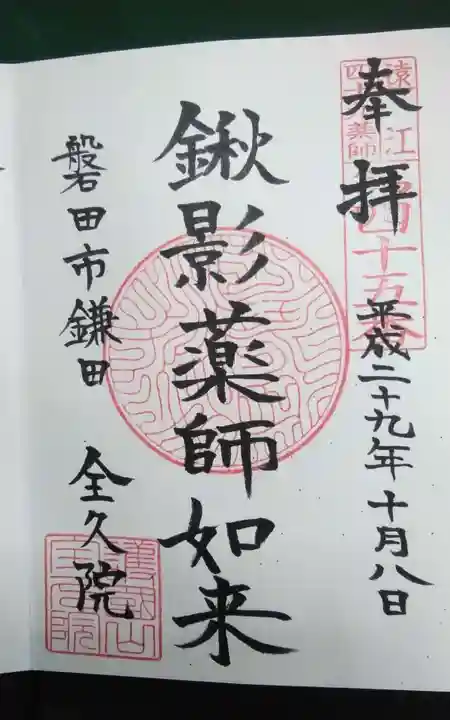 奉拝
遠江
四十九薬師
第四十五番
平成二十九年十月八日
鍬影薬師如来
磐田市鎌田
全久院